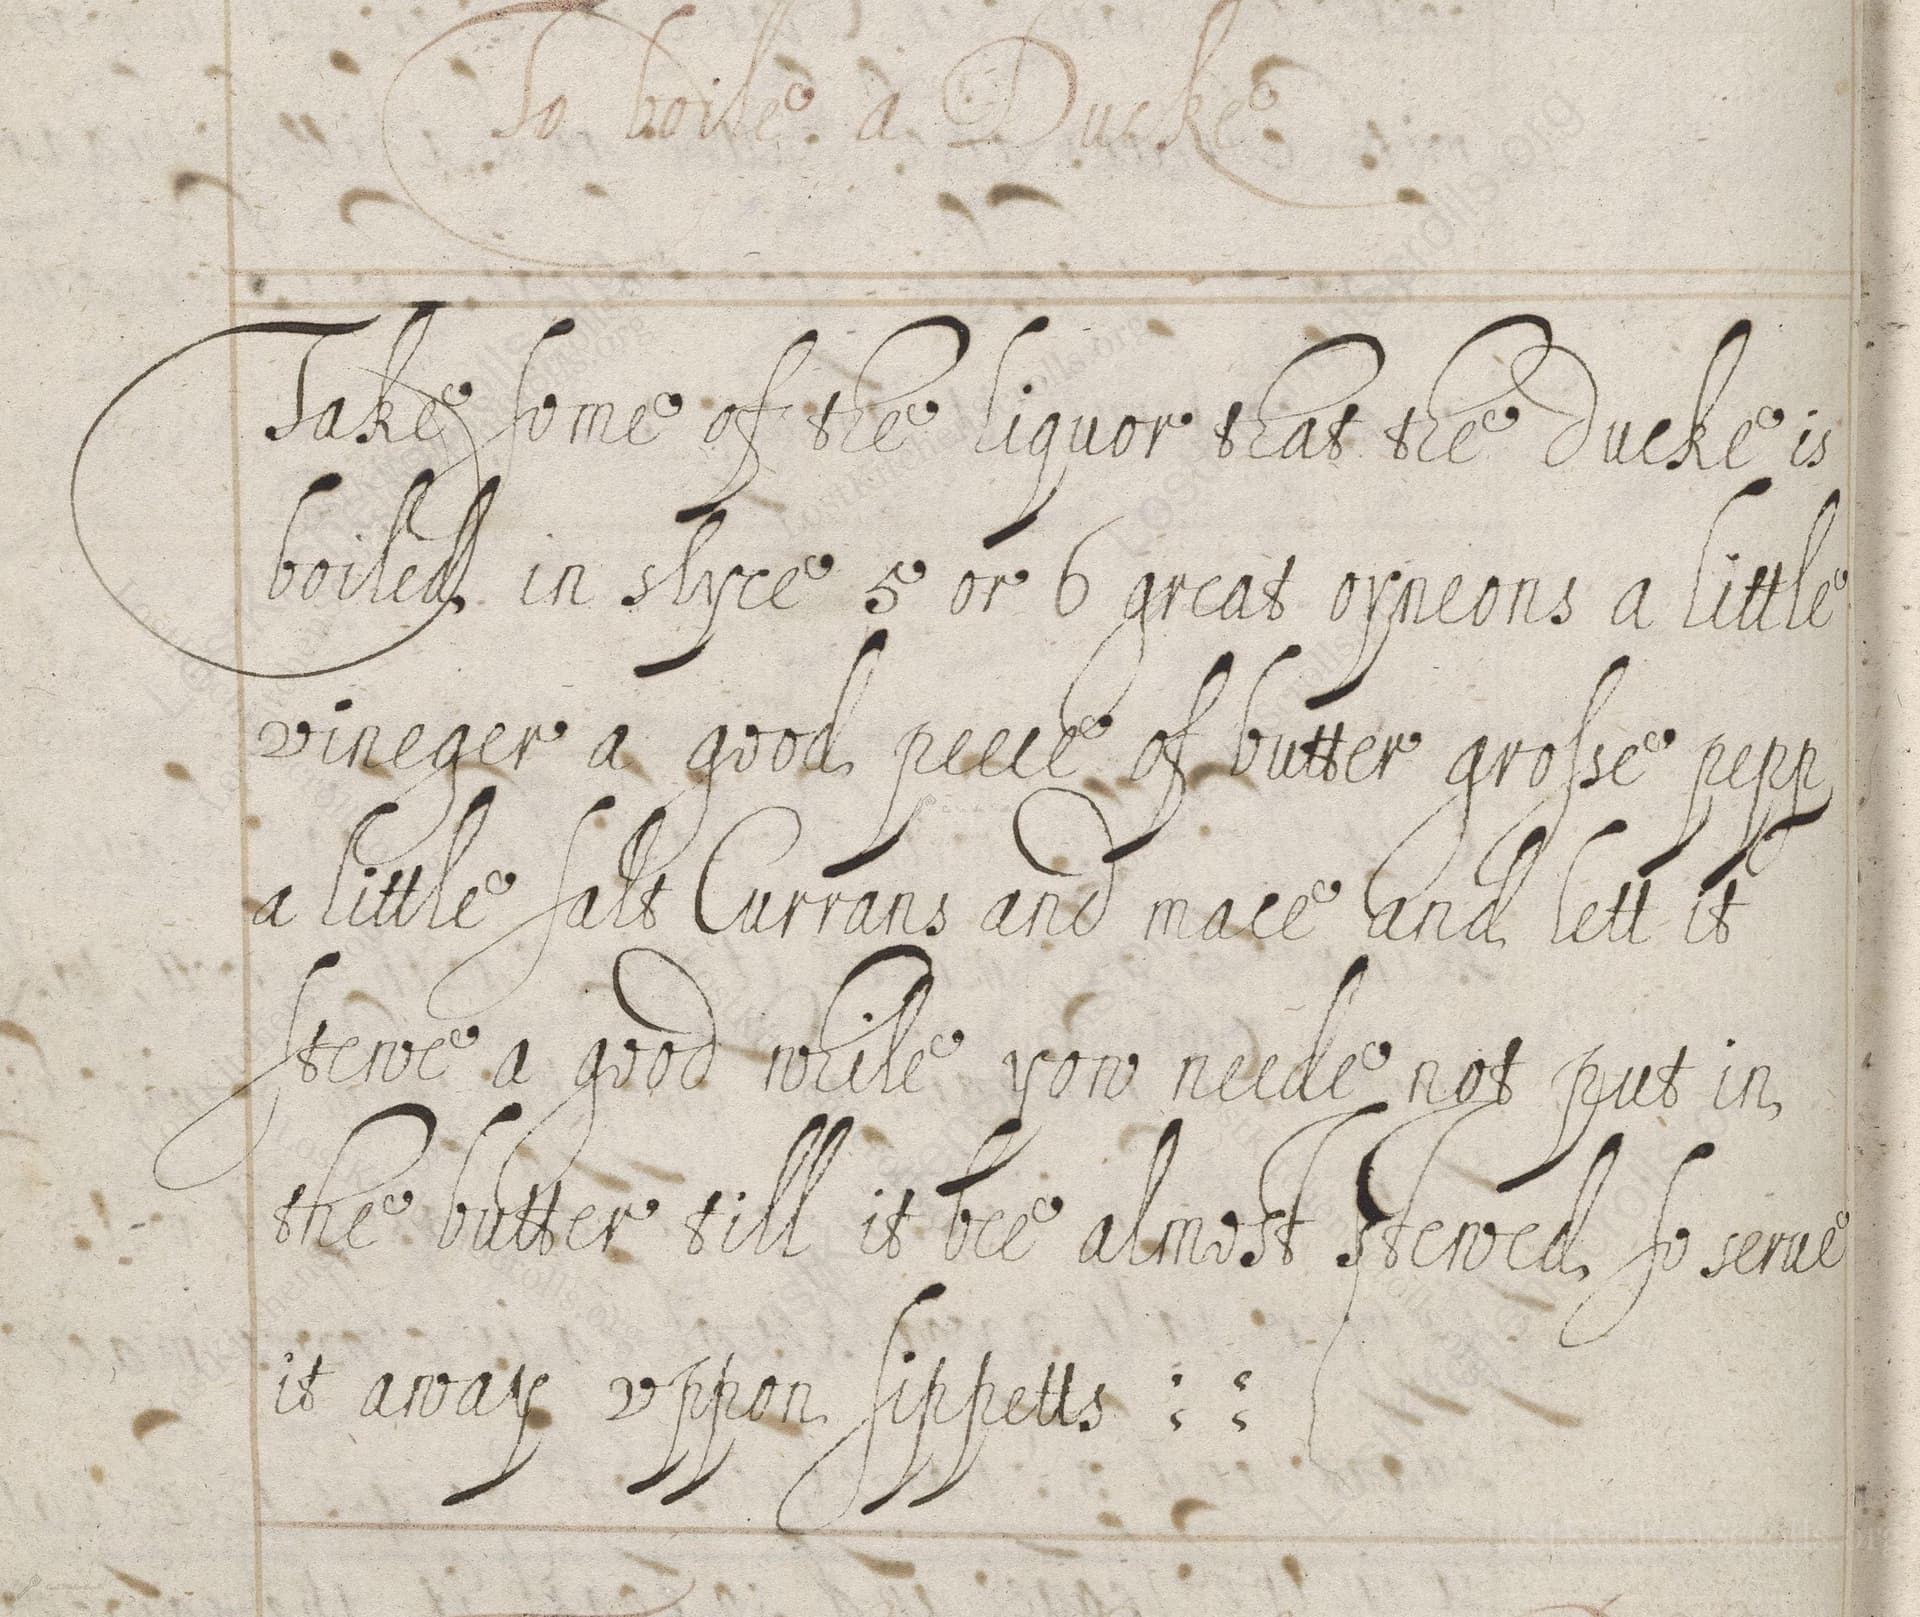 To boile a Ducke
Take some of the liquor that the Ducke is
boiled in slyce 5 or 6 great oyneons a little
vineger a good peece of butter grosse pepp
a little salt Currans and mace and lett it
stewe a good while yow neede not put in
the butter till it bee almost stewed so serue
it away vppon sippetts : :